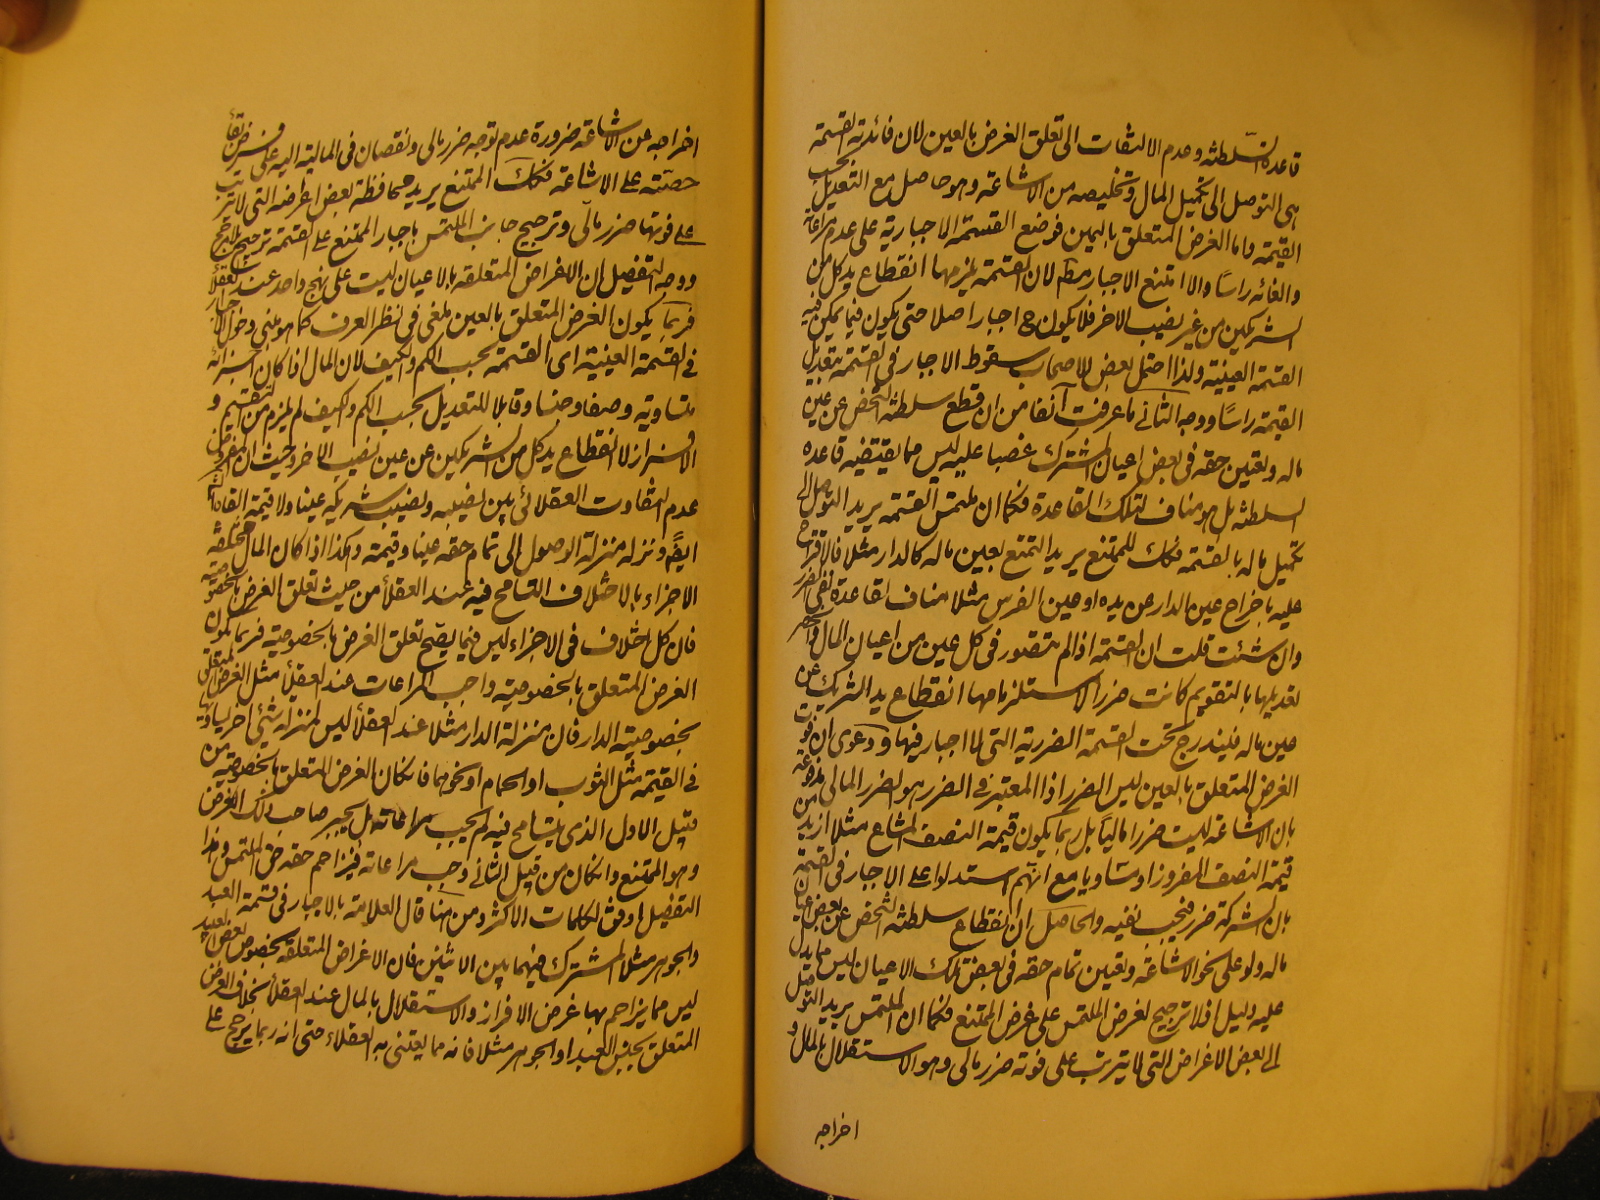 قاعدة السلطنة وعدم الالتفات الى تعلق الغرض بالعين لان فائدة القسمة
هي التوصل الى تكميل المال وتخليصه من الاشاعة وهو حاصل مع التعديل بحسب
القيمة واما الغرض المتعلق بالعين فوضع القسمة الاجبارية على عدم مراعاته
والغائه راسًا والا امتنع الاجبار مطلقا لان القسمة يلزمها انقطاع يد كل من
الشريكين من عين نصيب الاخر فلا يكون ح اجبار اصلا حتى يكون فيما يمكن فيه
القسمة العينية ولذا احتمل بعض الاصحاب سقوط الاجبار في القسمة بتعديل
القيمة راسًا ووجه الثاني ما عرفت آنفا من ان قطع سلطنة الشخص عن عين
ماله وتعيين حقه في بعض اعيان المشترك غصبا عليه ليس مما يقتضيه قاعدة
السلطنة بل هو مناف لتلك القاعدة فكما ان ملتمس القسمة يريد التوصل الى
تكميل ماله بالقسمة فكك الممتنع يريد التمتع بعين ماله كالدار مثلا فالاقتراح
عليه باخراج عين الدار عن يده او عين الفرس مثلا مناف لقاعدة نفي الضرر
وان شئت قلت ان القسمة اذا لم تتصور في كل عين من اعيان المال وانحصر
تعديلها بالتقويم كانت ضررا لاستلزامها انقطاع يد الشريك عن
عين ماله فيندرج تحت القسمة الضررية التي لا اجبار فيها ودعوى ان فوت
الغرض المتعلق بالعين ليس الضرر اذ المعتبر في الضرر هو الضرر المالى مدفوعة
بان الاشاعة ليست ضررا ماليا بل ربما يكون قيمة النصف المشاع مثلا ازيد من
قيمة النصف المفروز او مساويا مع انهم استدلوا على الاجبار في القسمة
بان الشركة ضرر فيجب نفيه والحاصل ان انقطاع سلطنة الشخص عن بعض اعيان
ماله ولو على نحو الاشاعة وتعيين تمام حقه في بعض تلك الاعيان ليس مما يدل
عليه دليل اذ لا ترجيح لغرض الملتمس على غرض الممتنع فكما ان الملتمس يريد التوصل
الى بعض الاغراض التي لا يترتب على فوته ضرر مالى وهو الاستقلال بالمال و
اخراجه
اخراجه عن الاشاعة ضرورة عدم توجه ضرر مالى ونقصان في المالية اليه على فرض بقاء
حصته على الاشاعة فكك الممتنع يريد محافظة بعض اغراضه التي لا يترتب
على فوتها ضرر مالى وترجيح جانب الملتمس باجبار الممتنع على القسمة ترجيح بلا مرجح
ووجه التفصيل ان الاغراض المتعلقة بالاعيان ليست على نهج واحد عند العقلاء
فربما يكون الغرض المتعلق بالعين ملغى في نظر العرف كما هو مبنى دخول الاجبار
في القسمة العينية اي القسمة بحسب الكم والكيف لان المال اذا كان اجزائه
متساوية وصفا وجنسا وقابلا للتعديل بحسب الكم والكيف لم يلزم من التقسيم و
الافراز الا انقطاع يد كل من الشريكين عن عين نصيب الاخر وحيث ان المفروض
عدم التفاوت العقلائي بين نصيبه ونصيب شريكه عينا ولا قيمة
ايضا ونزله منزلة الوصول الى تمام حقه عينا وقيمة وهكذا اذا كان المال مختلفة
الاجزاء بالاختلاف التسامح فيه عند العقلاء من حيث تعلق الغرض بالخصوصية
فان كل اختلاف في الاجزاء ليس فيما يصح تعلق الغرض بالخصوصية فربما يكون
الغرض المتعلق بالخصوصية واجب المراعات عند العقلاء مثل الغرض المتعلق
بخصوصية الدار فان منزلة الدار مثلا عند العقلاء ليس لمنزلة شيء اخر يساويها
في القيمة مثل الثوب او الحمام او نحوهما فان كان الغرض المتعلق بالخصوصية من
قبيل الاول الذي يتسامح فيه لم يجب مراعاته بل يجبر صاحب ذلك الغرض
وهو الممتنع وان كان من قبيل الثاني وجب مراعاته فيزاحم حقه حق الملتمس وهذا
التفصيل اوفق بكلمات الاكثر ومن هنا قال العلامة بالاجبار في قسمة العبيد
والجوهر مثلا المشترك فيهما بين الاثنين فان الاغراض المتعلقة بخصوص بعض العبيد
ليس مما يزاحم بها غرض الافراز والاستقلال بالمال عند العقلاء بخلاف الغرض
المتعلق بجنس العبد او الجوهر مثلا فانه مما يعتنى به العقلاء حتى انه ربما يرجح على